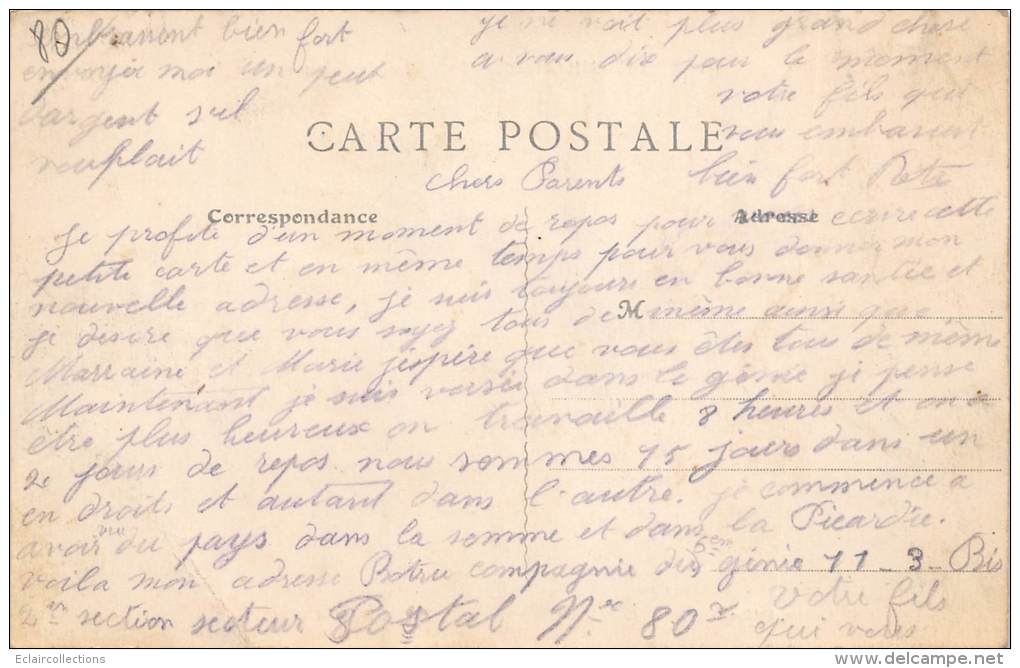 80
CARTE POSTALE
Correspondance
Adresse
M
chers Parents
Je profite d'un moment de repos pour vous ecrire cette
petite carte et en même temps pour vous donner mon
nouvelle adresse, je suis toujours en bonne santée et
je desire que vous soyez tous de même ainsi que
Marraine et Marie j'éspére que vous êtes tous de même
Maintenant je suis versée dans le génie je pense
être plus heureux on travaille 8 heures et on a
2e jours de repos nous sommes 15 jours dans un
en droits et autant dans l'autre. je commence a
avoir vu du pays dans la somme et dans la Picardie.
voila mon adresse Botru compagnie du 5em génie 11-3-Bis
2em section secteur Postal No 80
votre fils
qui vous
embrassent bien fort
envoyer moi un peut
d'argent s'il
vouplait
je ne voit plus grand chose
a vous dire pour le moment
votre fils qui
vous embrassent
bien fort
Eclaircollections
www.delcampe.net